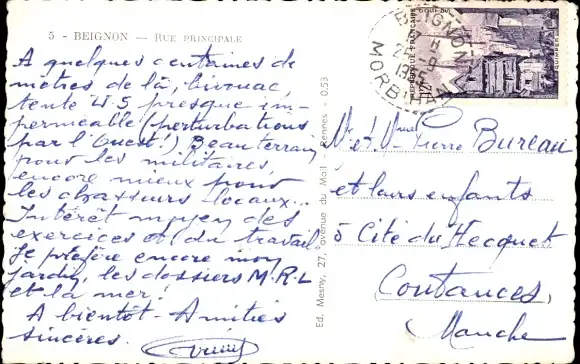 5 - BEIGNON — RUE PRINCIPALE
A quelques centaines de
mètres de là, bivouac,
tente US presque im-
perméable (perturbations
par l'Ouest!) Beau terrain
pour les militaires,
encore mieux pour
les chasseurs locaux...
Intérêt moyen des
exercices et du travail
Je préfère encore mon
jardin, les dossiers M.R.L
et la mer.
A bientôt - Amitiés
sincères.
Ed. Mesny, 27, avenue du Mail - Rennes - 0,53
BEIGNON
MORBIHAN
Mr et Mme Pierre Bureau
et leurs enfants
5 Cité du Hecquet
Coutances
Manche